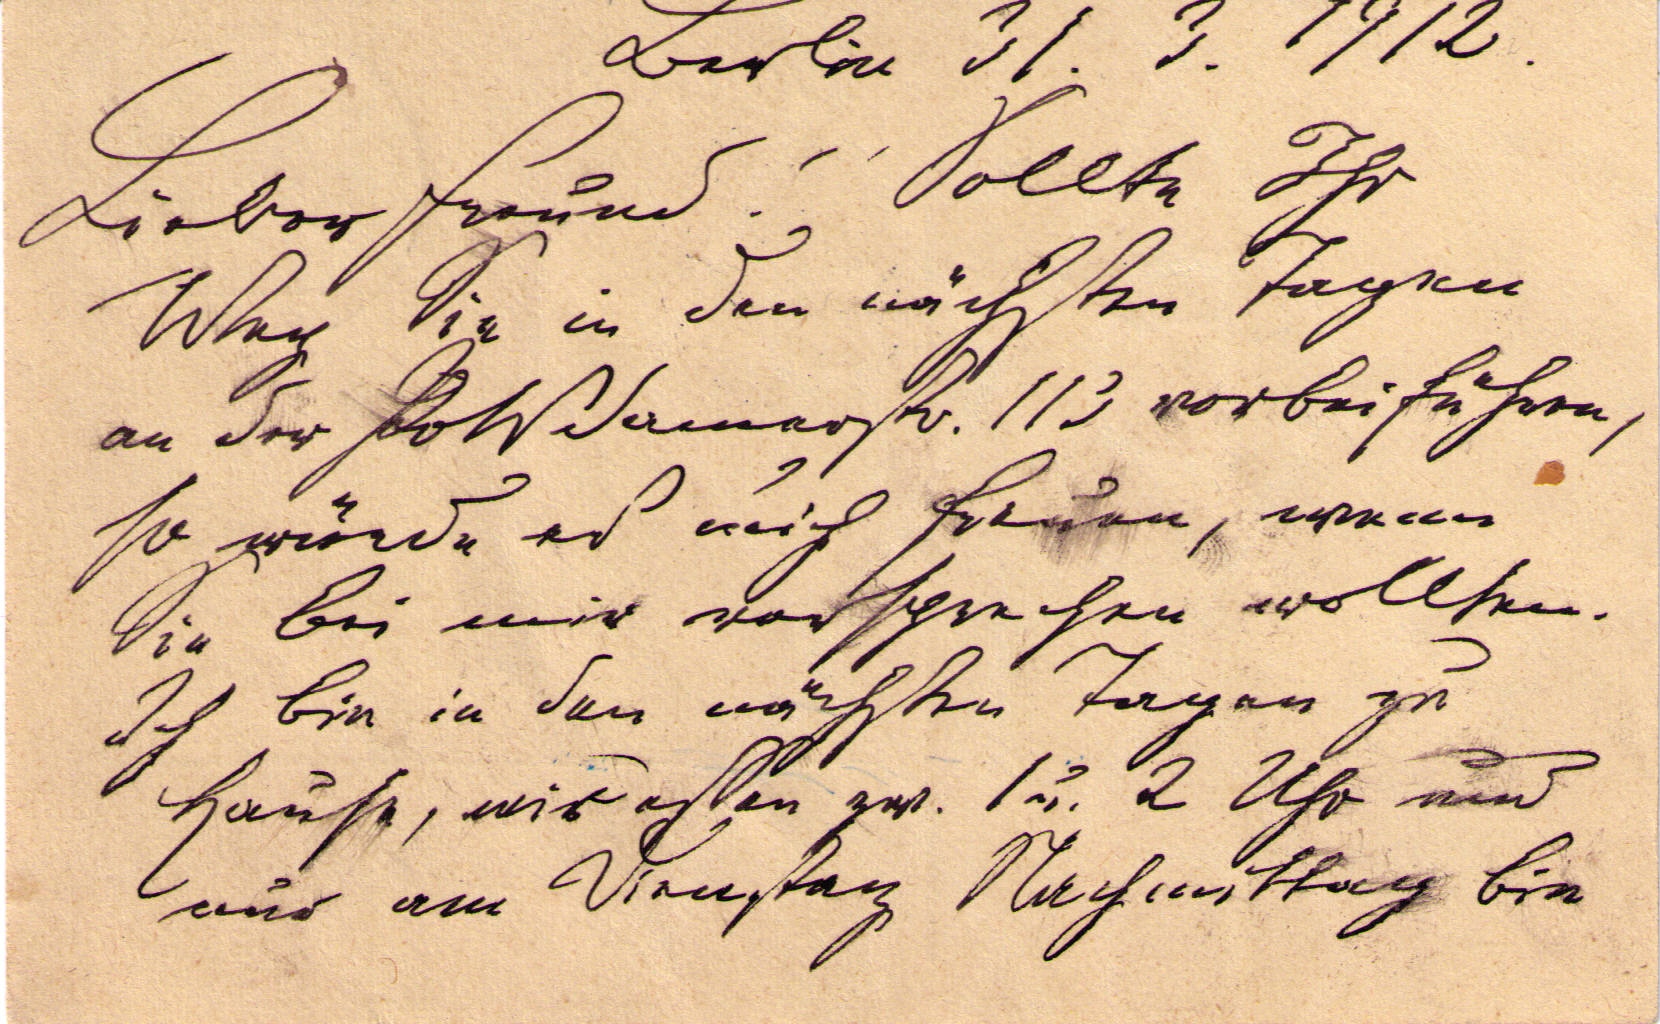 Berlin 31. 3. 1912.
Lieber Freund! Sollte Ihr
Weg Sie in den nächsten Tagen
an der Potsdamerstr. 113 vorbeiführen,
so würde es mich freuen, wenn
Sie bei mir vorsprechen wollten.
Ich bin in den nächsten Tagen zu
Hause, wir essen zw. 1 u. 2 Uhr und
nur am Dienstag Nachmittag bin